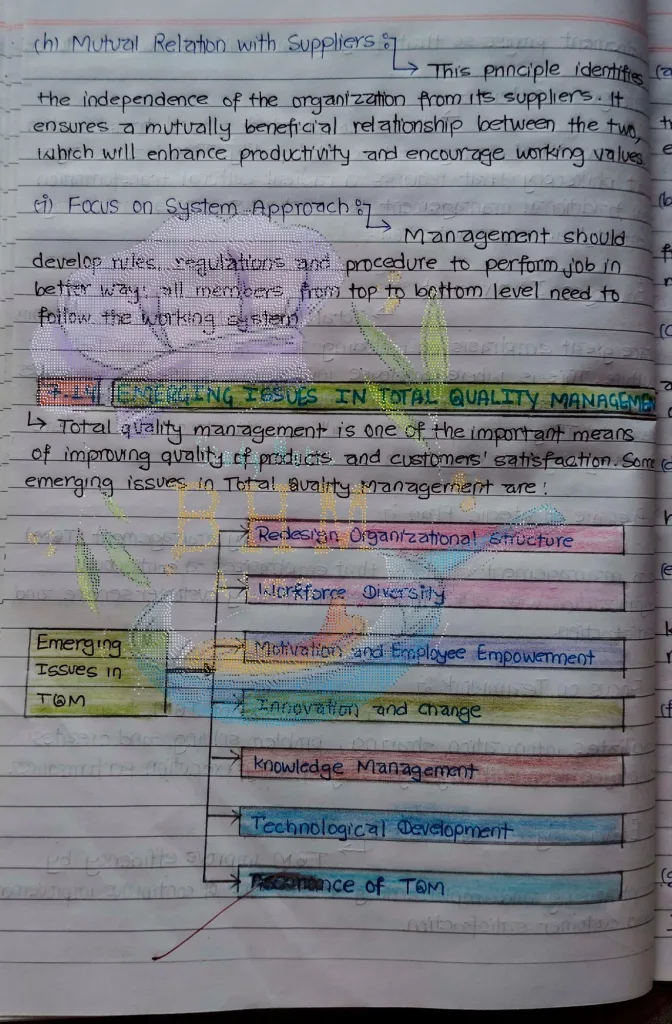 (h) Mutual Relation with Suppliers :
↳ This principle identifies
the independence of the organization from its suppliers. It
ensures a mutually beneficial relationship between the two,
which will enhance productivity and encourage working values.
(i) Focus on System Approach :
↳ Management should
develop rules, regulations and procedure to perform job in
better way; all members from top to bottom level need to
follow the working system.
7.14 EMERGING ISSUES IN TOTAL QUALITY MANAGEMEN
↳ Total quality management is one of the important means
of improving quality of products and customers' satisfaction. Some
emerging issues in Total Quality Management are:
BHM
Redesign Organizational Structure
Workforce Diversity
Emerging
Issues in
TQM
Motivation and Employee Empowerment
Innovation and change
Knowledge Management
Technological Development
of TQM